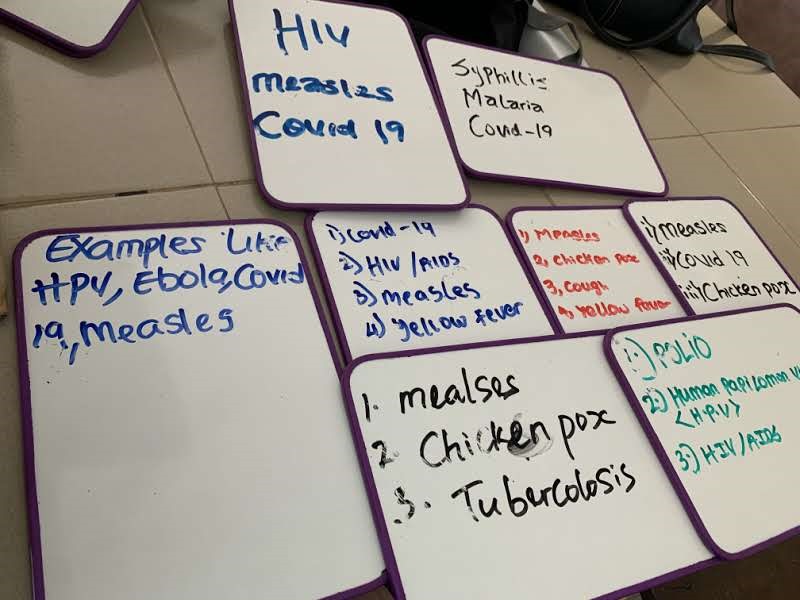 HIV
measles
Covid 19
Syphillis
Malaria
Covid-19
Examples Like
HPV, Ebola, Covid
19, measles
1) covid-19
2) HIV / AIDS
3) measles
4) yellow fever
1) Measles
2, chicken pox
3, cough
4, yellow fever
i) measles
ii) Covid 19
iii) Chicken pox
1. mealses
2 Chicken pox
3. Tubercolosis
1.) POLIO
2.) Human papiloman V
<H.P.V>
3.) HIV / AIDS